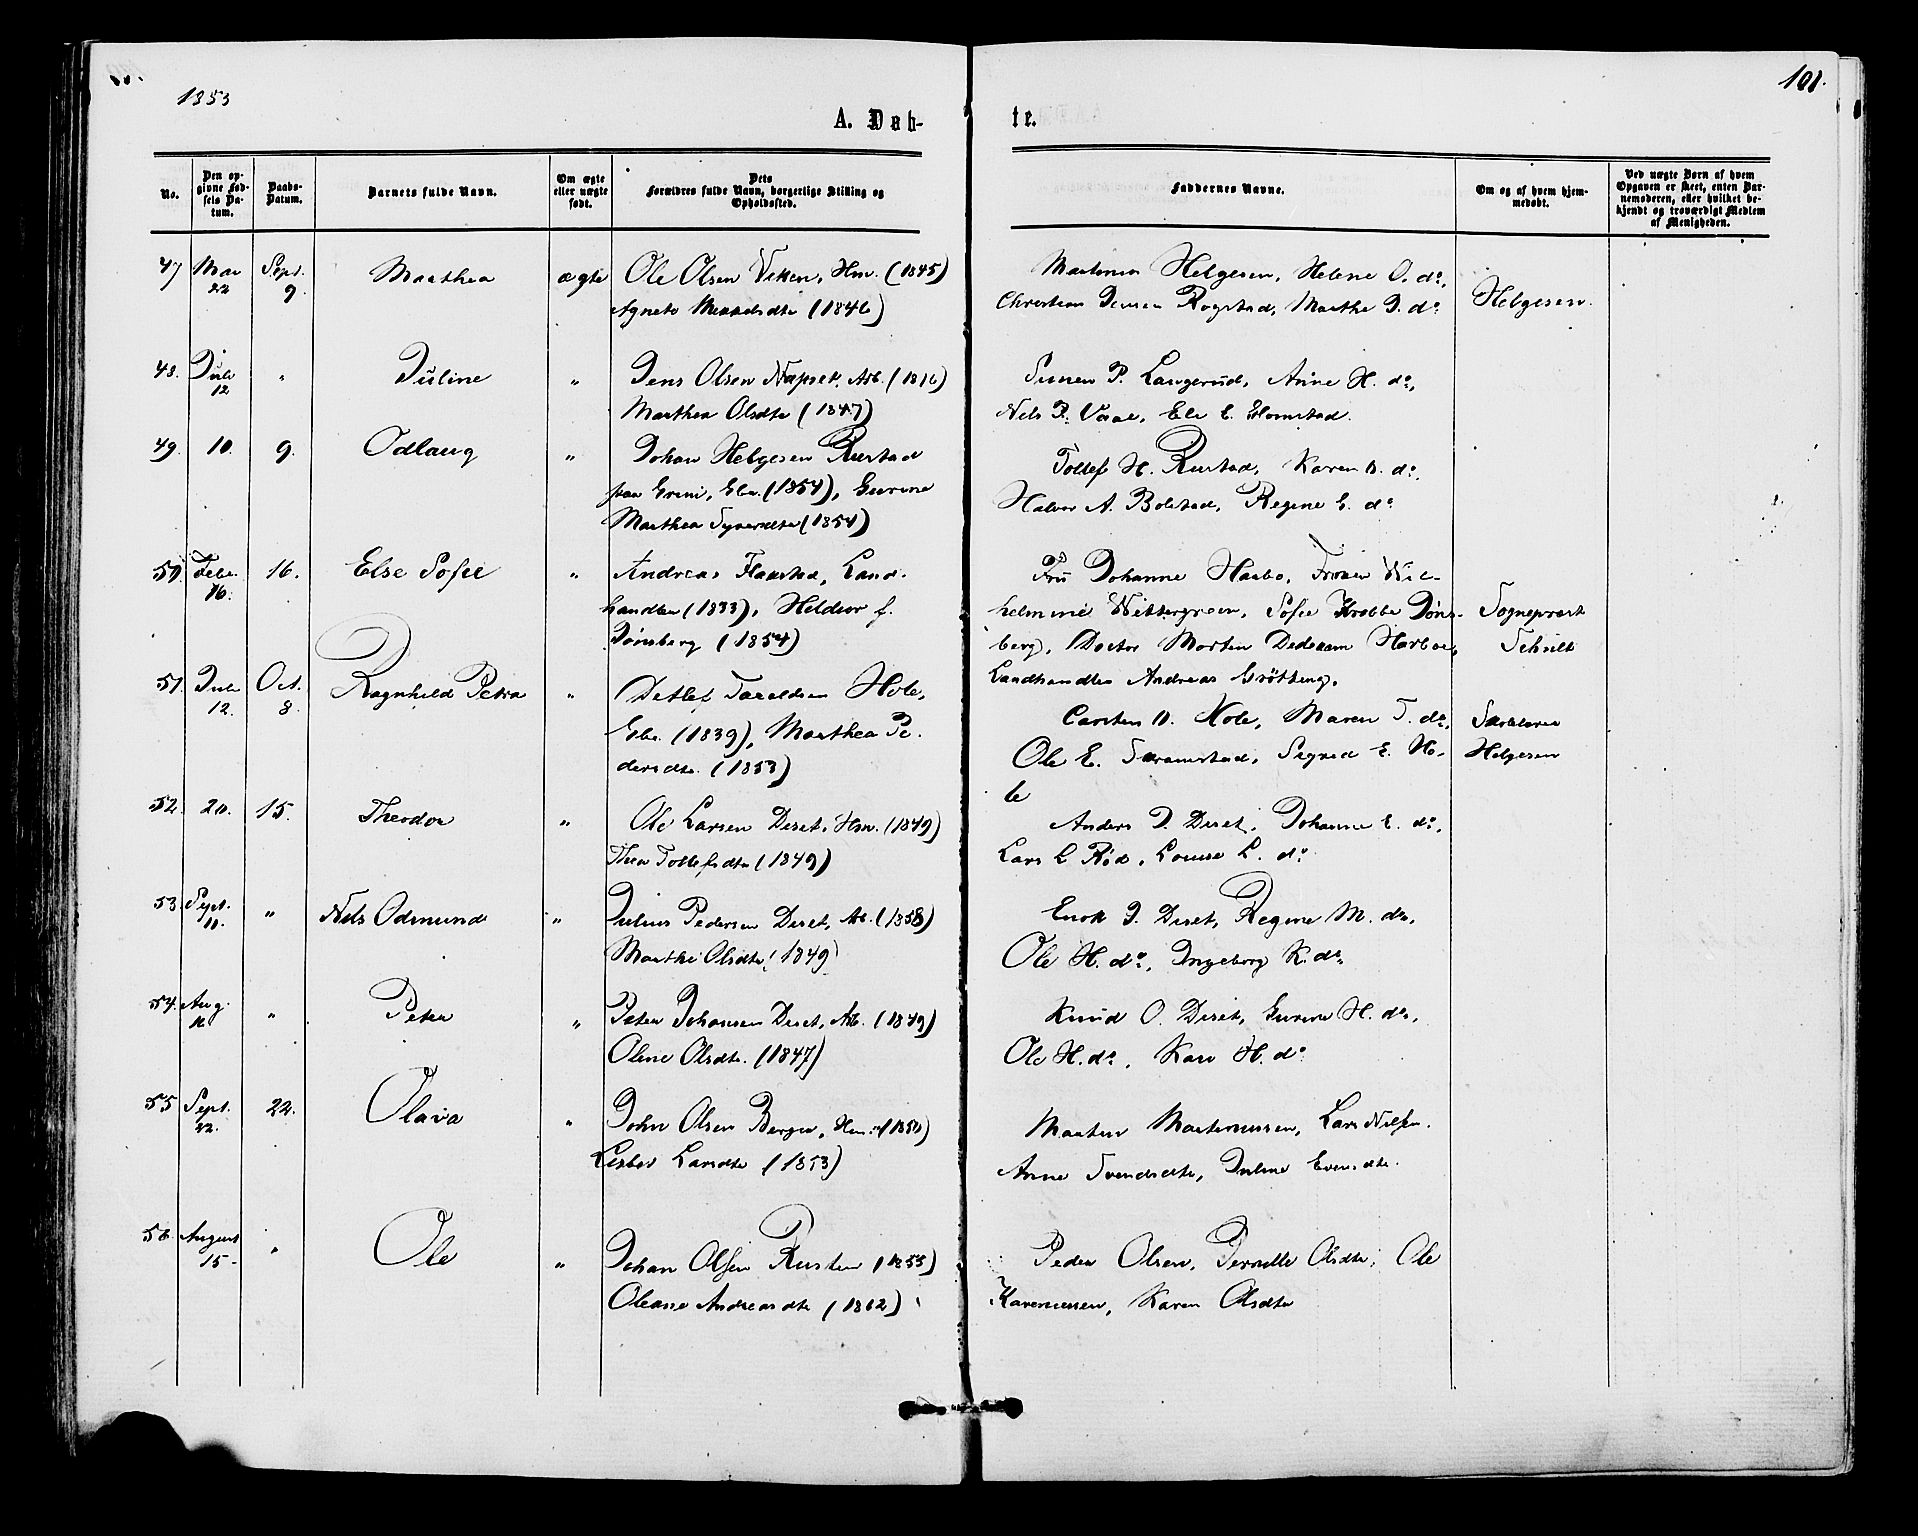 1853
101.
A. Døb-
te.
No.
Den op-
givne Fød-
sels Da-
tum.
Daabs-
Datum.
Barnets fulde Navn.
Om ægte
eller uægte
født.
Dets
Forældres fulde Navn, borgerlige Stilling og
Opholdssted.
Faddernes Navne.
Om og af hvem hjem-
medøbt.
Ved uægte Børn af hvem
Opgaven er skeet, enten Bar-
nemoderen, eller hvilket be-
kjendt og troværdigt Medlem
af Menigheden.
47 Mai 22 Sept. 9. Marthea ægte Ole Olsen Vikken, Hm. (1845)
(1846)
Helgesen, Helene O. do,
Christian Jensen Rogstad, Marthe J. do
Helgesen
48. Juli 12 " Juline " Jens Olsen Arb. (1816)
Marthea Olsdtr (1847)
Simen P. Langerud, Anne H. do,
Nils P. E. Homstad.
49. 10. 9. Odlaug " Johan Helgesen Rustad
Grini, Eier (1854), Gurine
Marthea Syversdtr (1854)
Tollef H. Rustad, Karen do,
Halvor A. Bolstad, Regine E. do
50 Febr. 16. 16. Else Sofie " Andreas Flaastad, Land-
handler (1833), f.
Jönsberg (1854)
Fru Johanne Harbo, Wil-
helmine Sofie Krabbe Jøns-
berg, Doctor Morten Harboe,
Landhandler Andreas Grötting.
Sogneprest
51. Juli 12. Oct. 8. Ragnhild Petra " Detlef Taraldsen Hole,
Eier (1839), Marthea Pe-
dersdtr. (1853)
Carsten D. Hole, Maren T. do,
Ole E. Sigrid E. Ho-
le
Helgesen
52. 20. 15. Theodor " Ole Larsen Diset, Hm. (1849)
Thea Tollefsdtr (1849)
Anders J. Diset, Johanne E. do,
Lars L Rød, Louise L. do
53. Sept. 11. " Nils Odmund " Julius Pedersen Diset, Arb. (1858)
Marthe Olsdtr (1849)
Enok J. Diset, Regine M. do,
Ole H. do, Ingeborg K. do,
54. Aug. " Peter " Peter Johansen Diset, Arb. (1849)
Oline Olsdtr. (1847)
Knud O. Diset, Gurine H. do,
Ole H. do, Kari H. do
55 Sept. 22. 22. Olava " John Olsen Berger, Hm. (1850)
Lisbet Larsdtr (1853)
Martin Martinussen, Lars Nilsen.
Anne Svendsdtr, Juline Evensdtr.
56. August 15. " Ole " Johan Olsen Rusten (1855)
Oleane Andreasdtr (1862)
Peder Olsen, Pernille Olsdtr, Ole
Karenussen, Karen Olsdtr